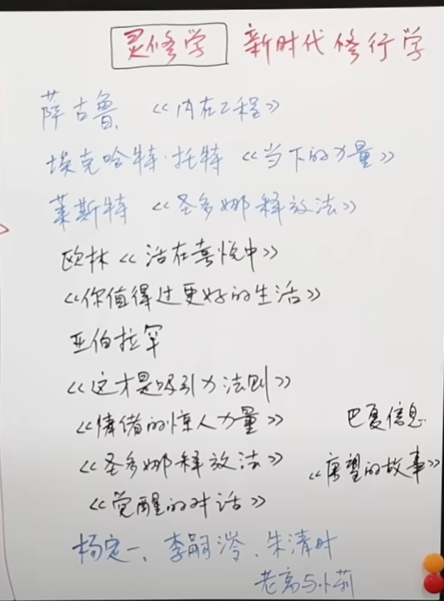 灵修学 新时代修行学
萨古鲁 《内在工程》
埃克哈特·托特《当下的力量》
莱斯特 《圣多娜释放法》
欧林《活在喜悦中》
《你值得过更好的生活》
亚伯拉罕
《这才是吸引力法则》
《情绪的惊人力量》
巴夏信息
《圣多娜释放法》
《寓望的故事》
《觉醒的对话》
杨定一、李嗣涔、朱清时
老高与小茉